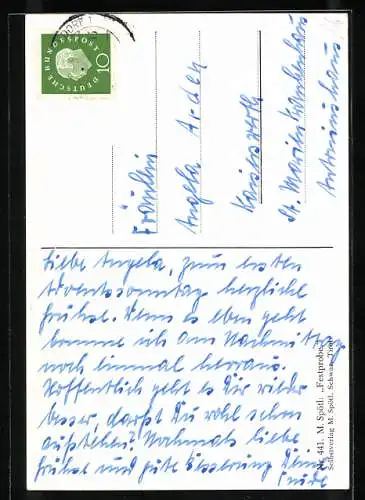 DEUTSCHE BUNDESPOST
10
Fräulein
Angela
Kaiserswerth
St. Marienkrankenhaus
Liebe Angela, zum ersten
Adventssonntag herzliche
Grüße. Wenn es eben geht
komme ich am Nachmittag
noch einmal herraus.
Hoffentlich geht es Dir wieder
besser, darfst Du wohl schon
aufstehen? Nochmals liebe
Grüße und gute Besserung Deine
Nr. 441. M. Spötl: „Festprobe“
Selbstverlag M. Spötl, Schwaz, Tirol